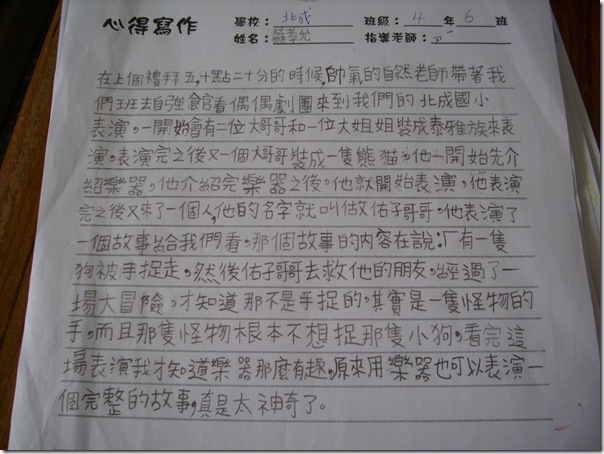 心得寫作 學校：北成 班級：4年6班
姓名： 指導老師：
在上個禮拜五，十點二十分的時候，帥氣的自然老師帶著我
們班去自強館看偶偶偶劇團來到我們的北成國小
表演。一開始會有二位大哥哥和一位大姐姐裝成泰雅族來表
演。表演完之後又一個大哥哥裝成一隻熊貓，他一開始先介
紹樂器，他介紹完樂器之後，他就開始表演。他表演
完之後又來了一個人，他的名字就叫做佑子哥哥。他表演了
一個故事給我們看，那個故事的內容在說：「有一隻
狗被手捉走，然後佑子哥哥去救他的朋友，經過了一
場大冒險，才知道那不是手捉的，其實是一隻怪物的
手，而且那隻怪物根本不想捉那隻小狗，看完這
場表演我才知道樂器那麼有趣，原來用樂器也可以表演一
個完整的故事，真是太神奇了。